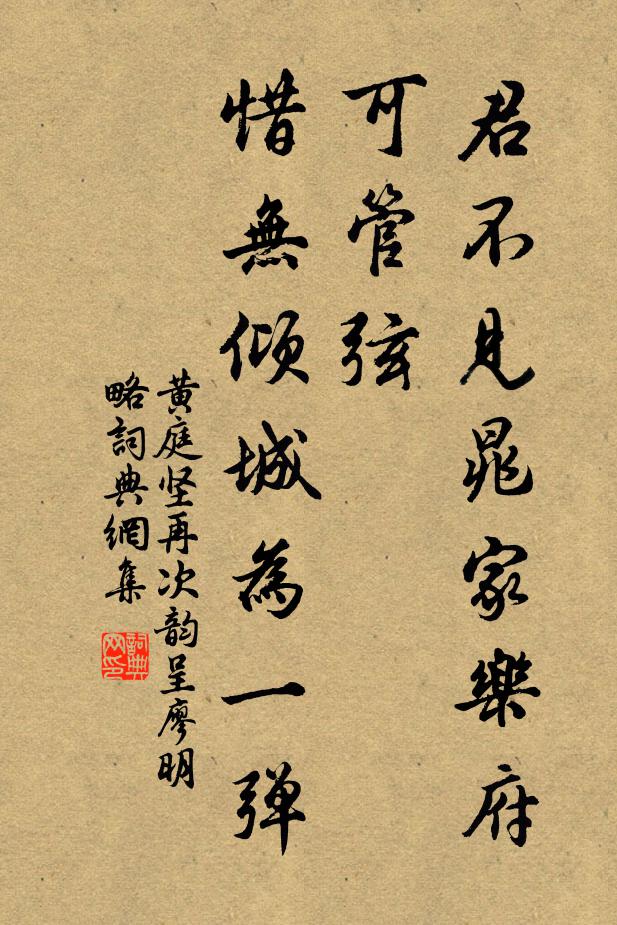 君不見晁家樂府
可管弦
惜無傾城為一弹
黄庭坚再次韵呈廖明
略詞典網集
詞典网印